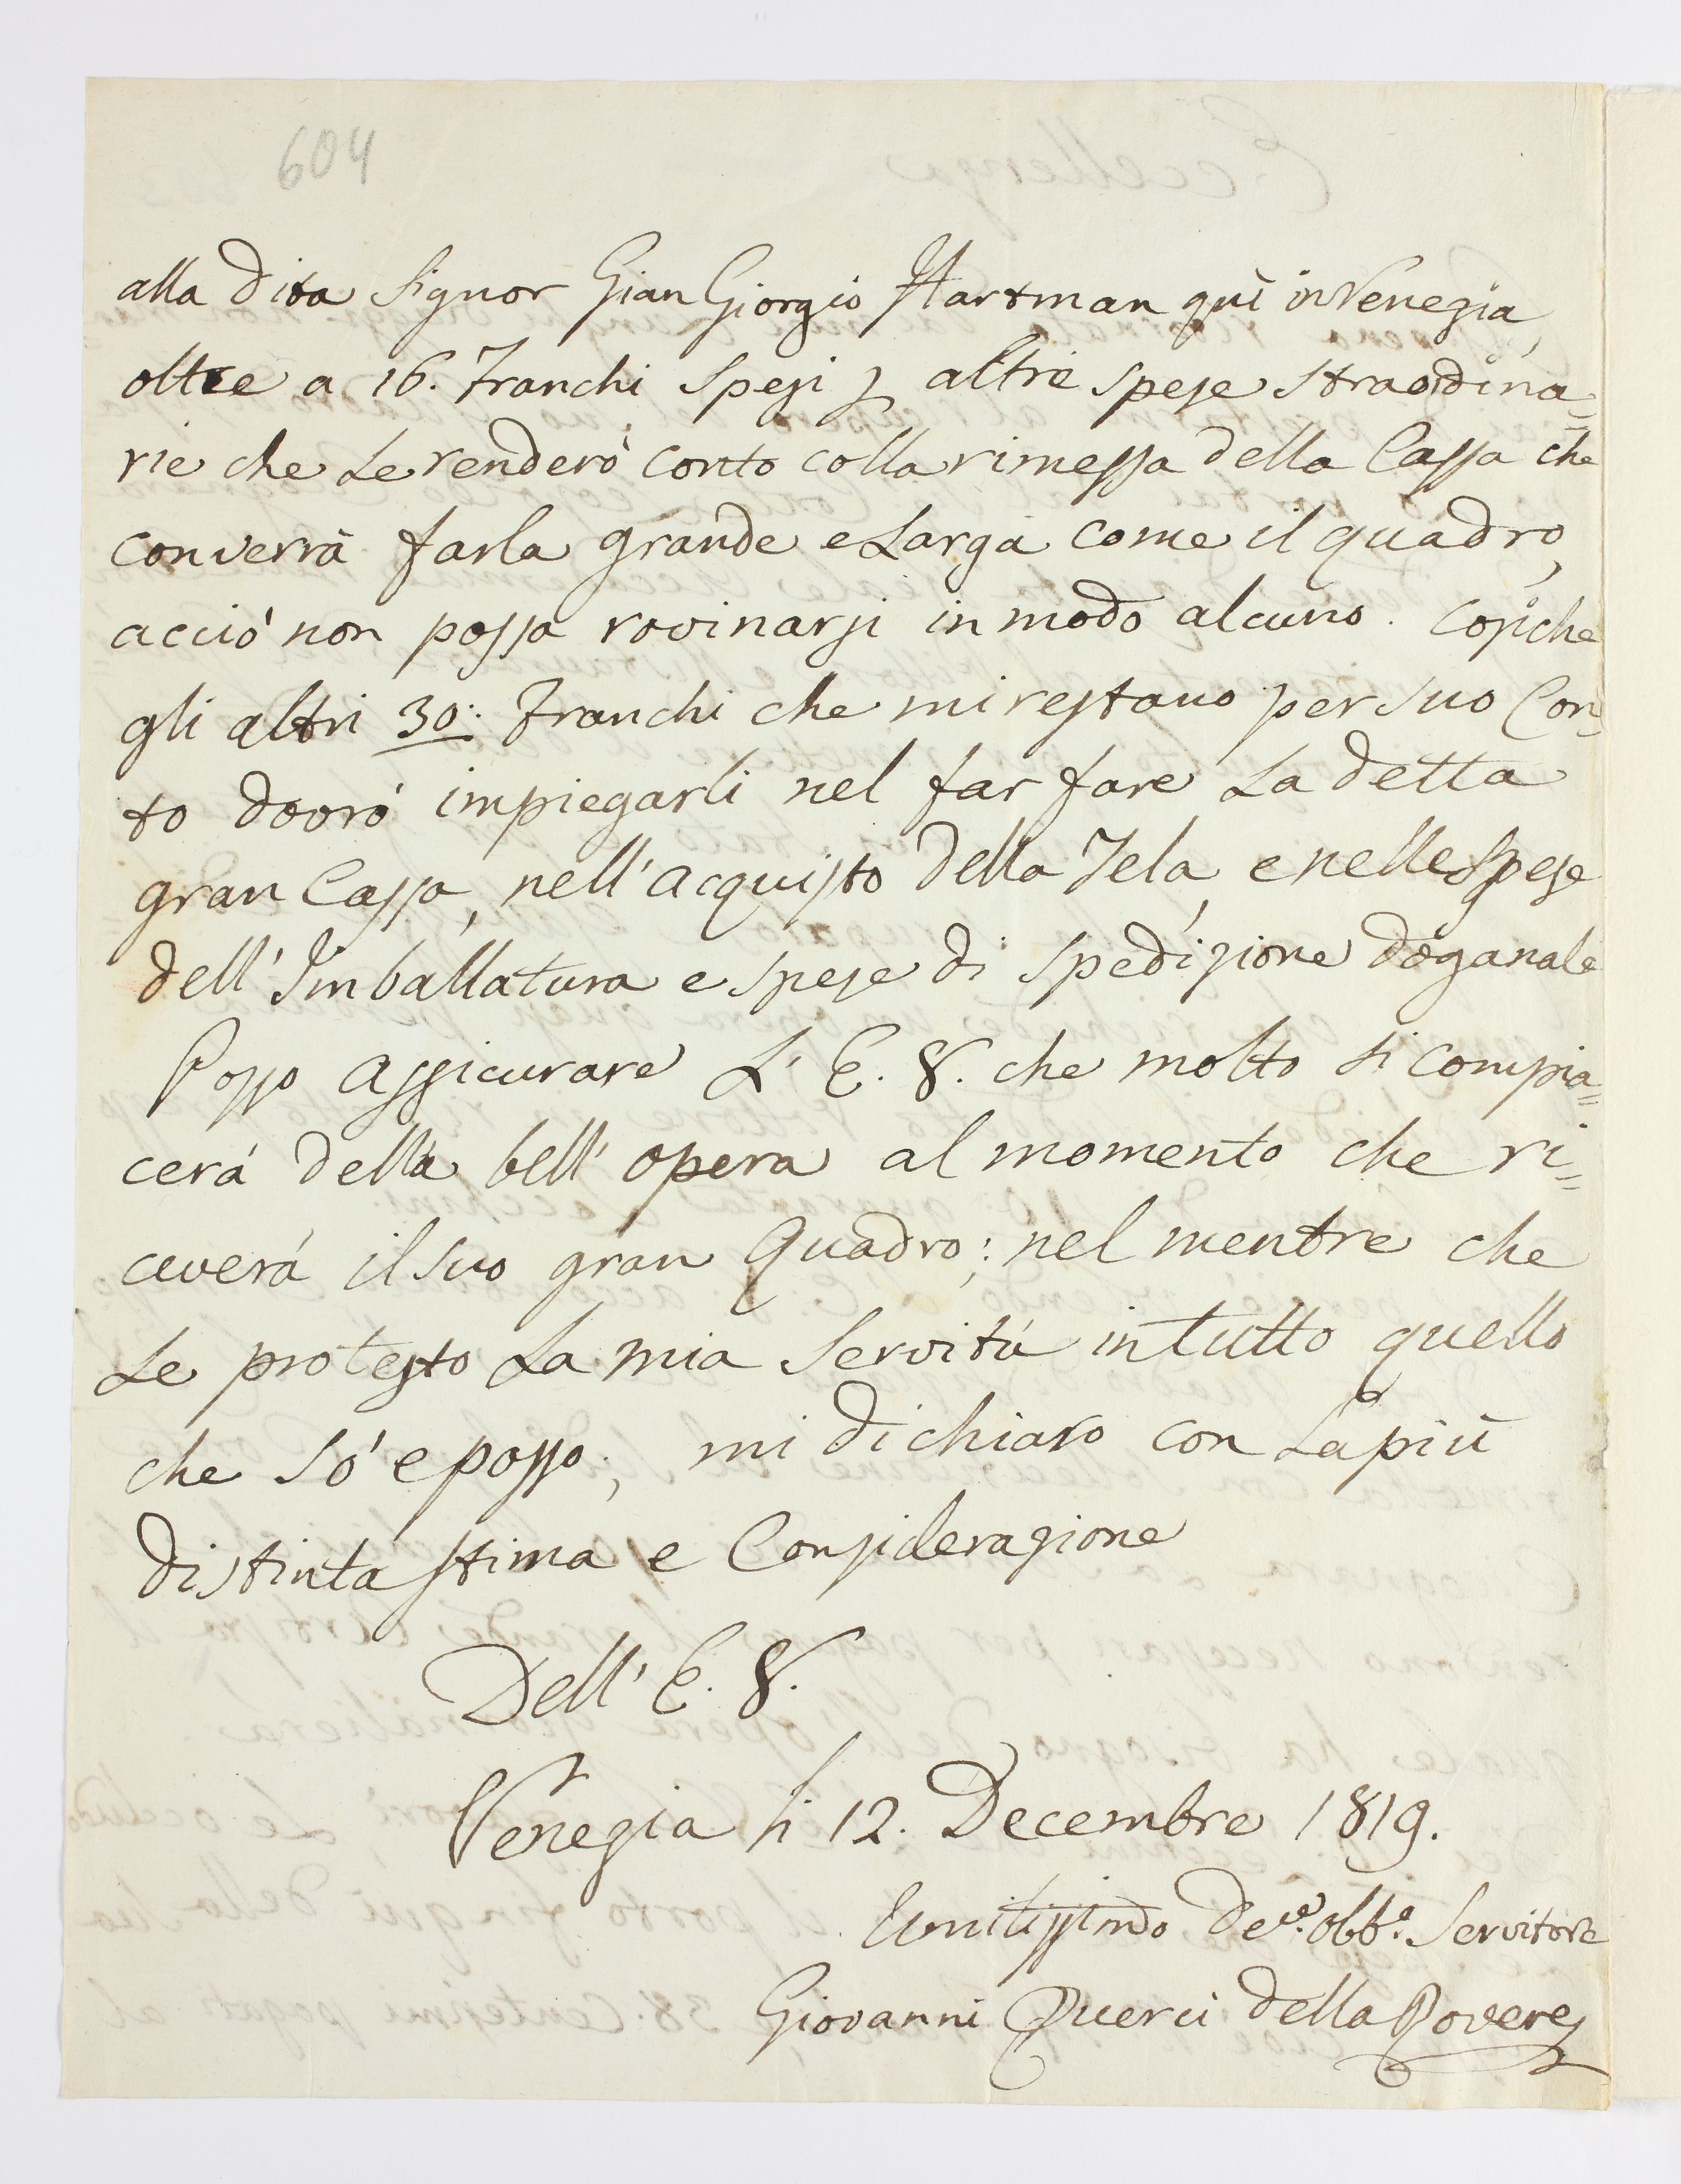 604
alla dita Signor Gian Giorgio Hartman quì in Venezia,
oltre a 16. Franchi spesi p altre spese straordina=
rie che Le renderò conto colla rimessa della Cassa che
converrà farla grande e Larga come il quadro,
acciò non possa rovinarsi in modo alcuno. Cosìche
gli altri 30: Franchi che mi restano per suo Con=
to dovrò impiegarli nel far fare La detta
gran Cassa, nell'acquisto della Tela, e nelle Spese
dell'Imballatura e spese di spedizione doganale
Posso assicurare L'E. V. che molto si compia=
cerá della bell'opera al momento che ri=
ceverá il suo gran Quadro; nel mentre che
Le protesto La mia Servitù in tutto quello
che só e posso; mi dichiaro con La più
distinta stima e Considerazione
Dell'E. V.
Venezia li 12. Decembre 1819.
Umilissimo Dev.º obb.º Servitore
Giovanni Querci della Rovere